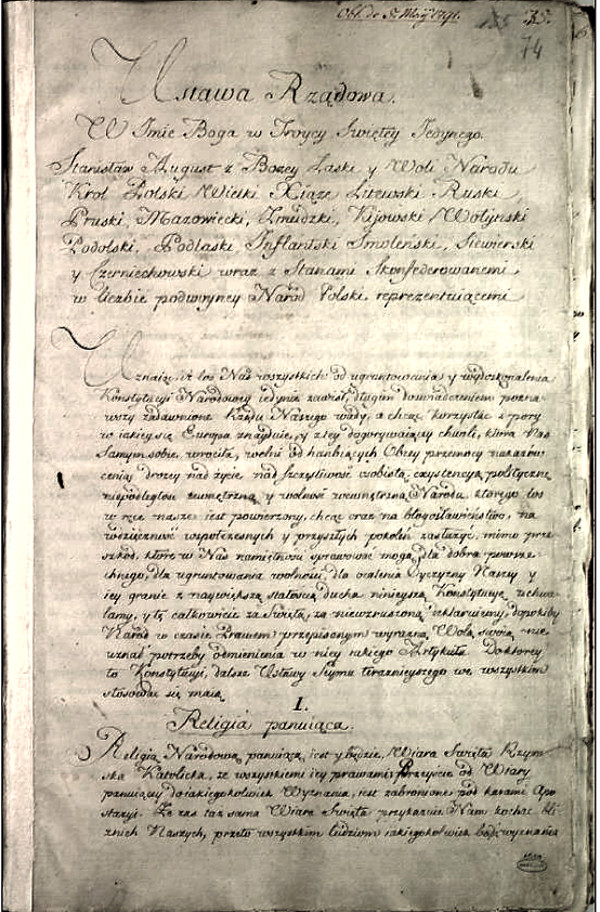 Obl. de 5. Maij 1791.
155
35.
74
Ustawa Rządowa.
W Imie Boga w Troycy Swiętey Jedynego.
Stanisław August z Bozey Łaski y Woli Narodu
Krol Polski Wielki Xiąze Litewski Ruski
Pruski, Mazowiecki, Zmudzki, Kijowski Wołyński
Podolski, Podlaski Inflantski Smoleński, Siewierski
y Czerniechowski wraz z Stanami Skonfederowanemi
w liczbie podwoyney Naród Polski reprezentuiącemi
Uznaiąc, iż los Nas wszystkich od ugruntowania y wydoskonalenia
Konstytucyi Narodowey iedynie zawisł, długim doswiadczeniem pozna-
wszy zadawnione Rządu Naszego wady, a chcąc korzystać z pory
w iakiey się Europa znayduie, y z tey dogorywaiącey chwili, która Nas
Samym sobie wrociła, wolni od hańbiących Obcey przemocy nakazów
ceniąc drozey nad życie, nad szczęśliwość osobistą, exystencyą polityczną
niepodległość zewnętrzną y wolność wewnętrzną Narodu, którego los
w ręce nasze iest powierzony, chcąc oraz na błogosławieństwo, na
wdzięczność współczesnych y przyszłych pokoleń zasłużyć, mimo prze-
szkód, które w Nas namiętności sprawować mogą, dla dobra powsze-
chnego, dla ugruntowania wolności, dla ocalenia Oyczyzny Naszey y
iey granic z naywiększą stałością ducha ninieyszą Konstytucyę uchwa-
lamy, y tę całkowicie za Swiętą, za niewzruszoną deklaruiemy, dopokiby
Naród w czasie Prawem przepisanym wyrazną Wolą swoią nie
uznał potrzeby odmienienia w niey iakiego Artykułu. Do ktorey
to Konstytucyi, dalsze Ustawy Seymu teraznieyszego we wszystkim
stosować się maią
I.
Religia panuiąca.
Religią Narodową panuiącą iest y będzie Wiara Swięta Rzym-
ska Katolicka, ze wszystkiemi iey prawami; Przeyście od Wiary
panuiącey do iakiegokolwiek Wyznania, iest zabronione pod karami Apo-
stazyi. Ze zaś taż sama Wiara Swięta przykazuie Nam kochać bli-
znich Naszych, przeto wszystkim ludziom iakiegokolwiek bądź wyznania